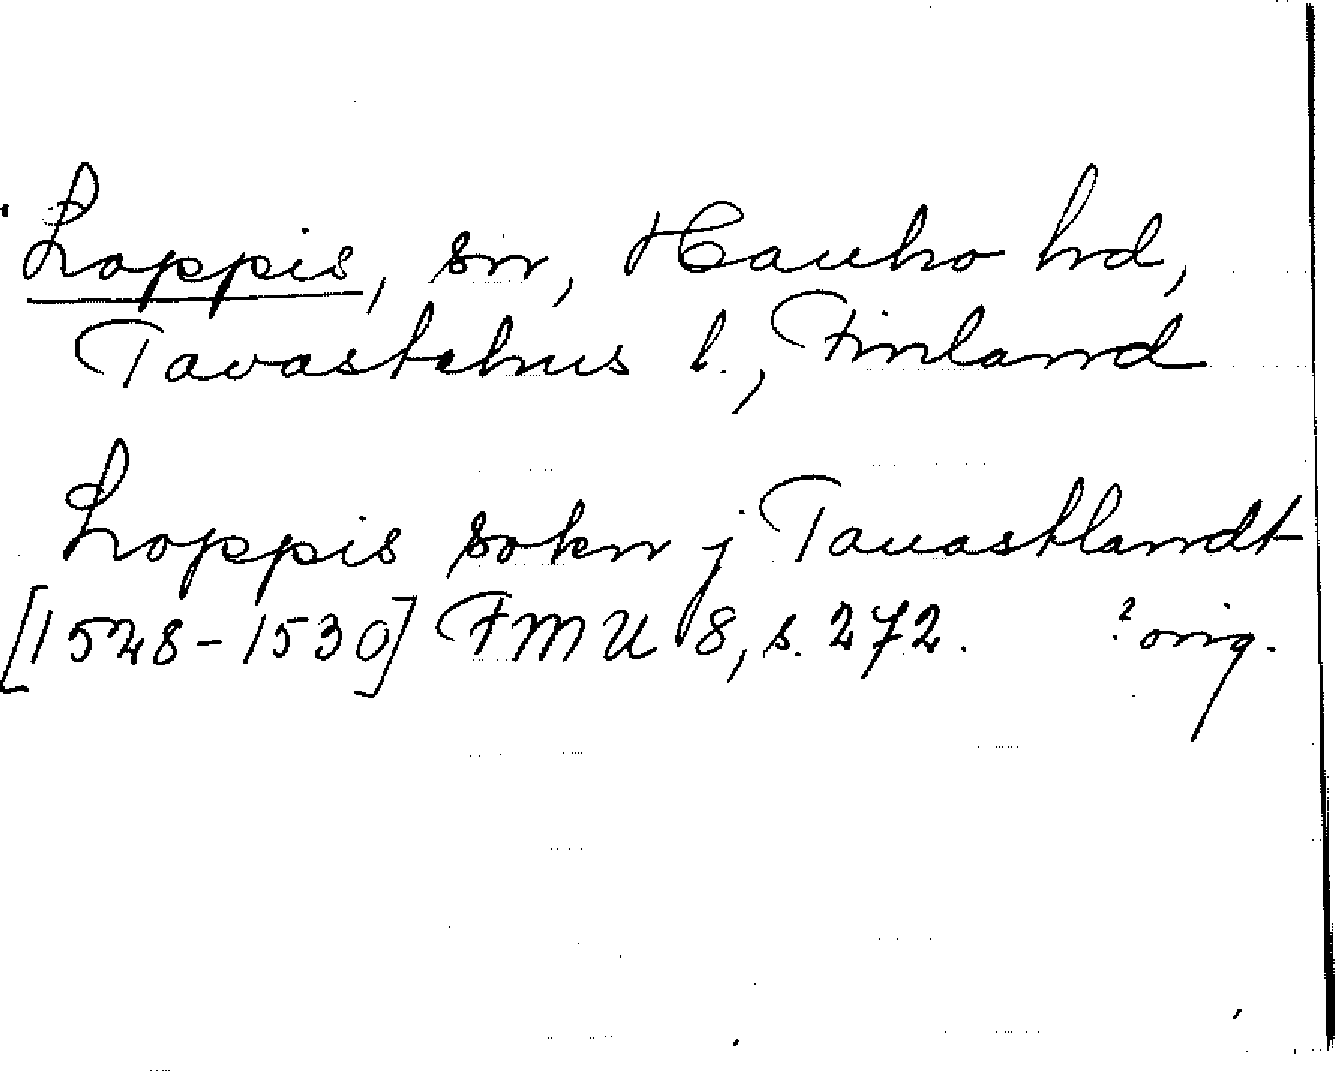 Loppis, sn, Hauho hd,
Tavastehus l., Finland
Loppis sokn j Tauastlandt
[1528-1530] FMU 8, s. 272. ? orig.